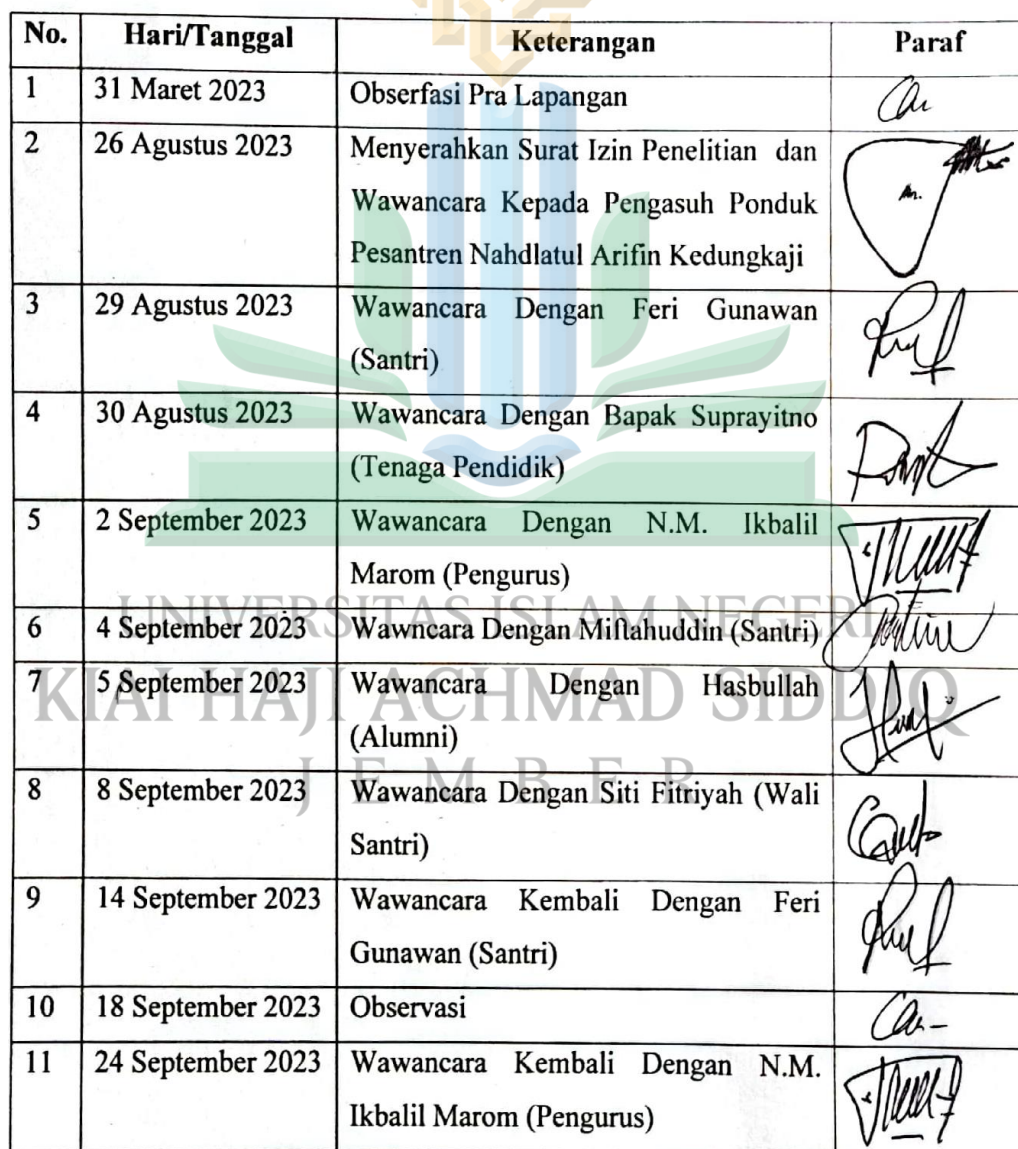 No. Hari/Tanggal Keterangan Paraf
1 31 Maret 2023 Obserfasi Pra Lapangan
2 26 Agustus 2023 Menyerahkan Surat Izin Penelitian dan
Wawancara Kepada Pengasuh Ponduk
Pesantren Nahdlatul Arifin Kedungkaji
3 29 Agustus 2023 Wawancara Dengan Feri Gunawan
(Santri)
4 30 Agustus 2023 Wawancara Dengan Bapak Suprayitno
(Tenaga Pendidik)
5 2 September 2023 Wawancara Dengan N.M. Ikbalil
Marom (Pengurus)
UNIVERSITAS ISLAM NEGERI
6 4 September 2023 Wawncara Dengan Miftahuddin (Santri)
7 5 September 2023 Wawancara Dengan Hasbullah
KIAI HAJI ACHMAD SIDDIQ
(Alumni)
JEMBER
8 8 September 2023 Wawancara Dengan Siti Fitriyah (Wali
Santri)
9 14 September 2023 Wawancara Kembali Dengan Feri
Gunawan (Santri)
10 18 September 2023 Observasi
11 24 September 2023 Wawancara Kembali Dengan N.M.
Ikbalil Marom (Pengurus)